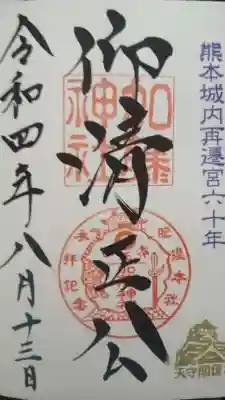 熊本城内再遷宮六十年
仰清正公
加藤
神社
令和四年八月十三日